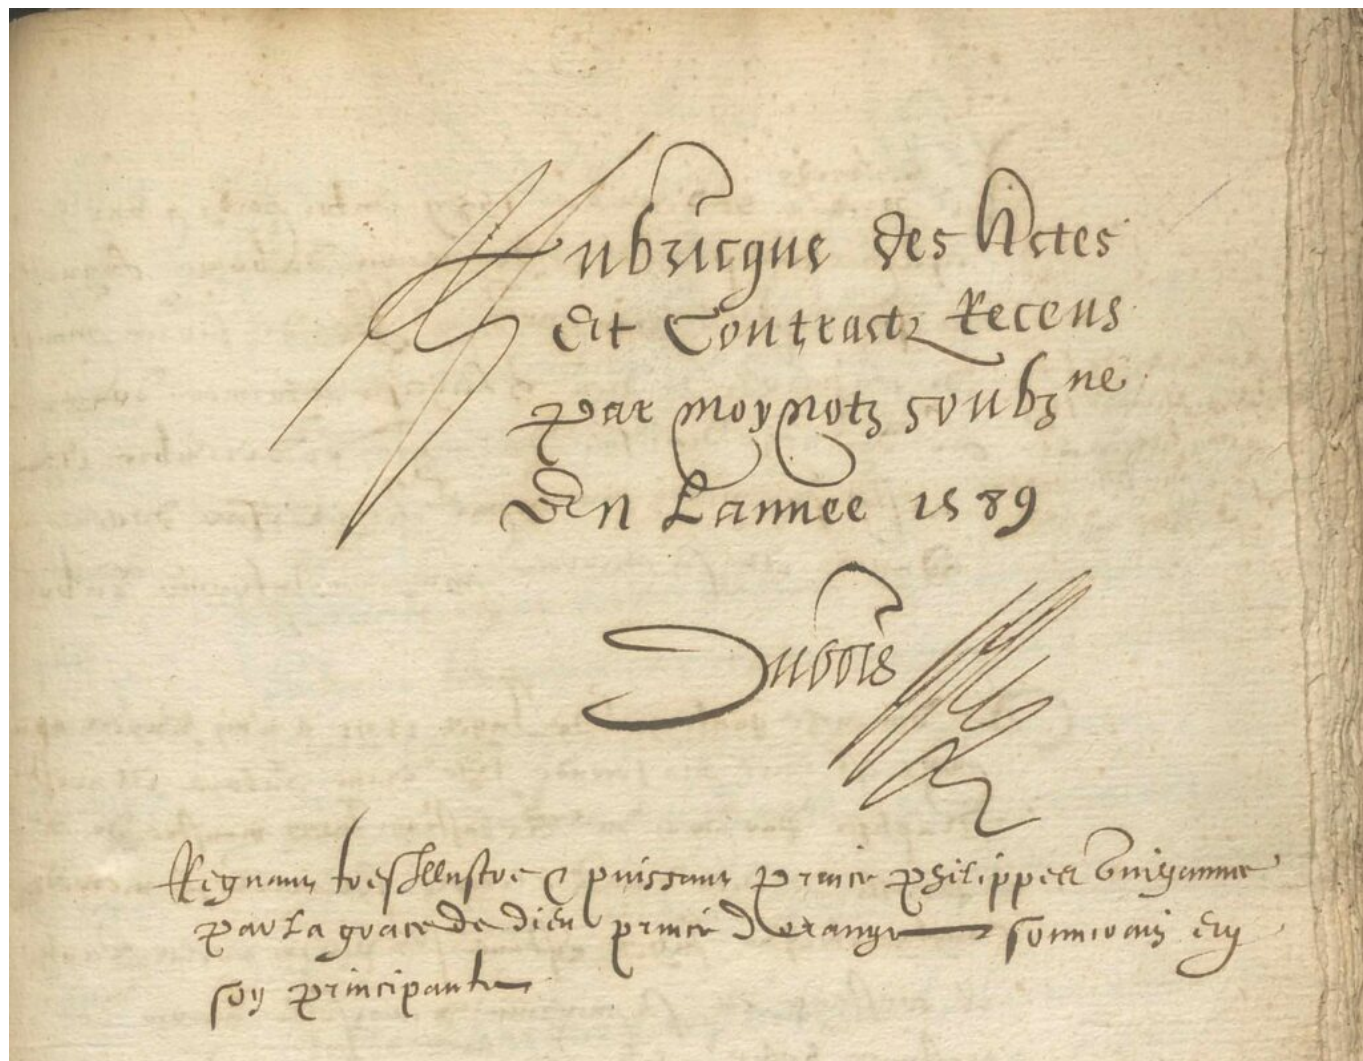 Rubricque des Actes
Et Contractz Receus
par moy notz soubzne
En Lannee 1589
Dubois
Regnant tresIllustre & puissant prince philippes Guigaume
par La grace de dieu prince Dorange souverain en
soy principaulte